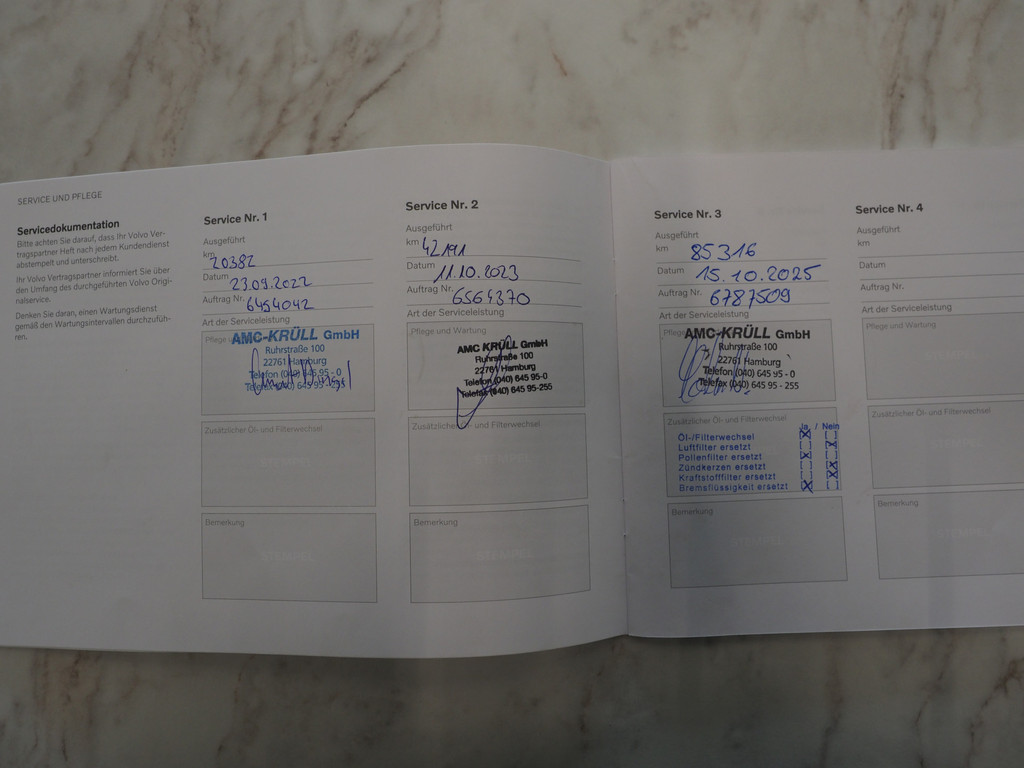 SERVICE UND PFLEGE
Servicedokumentation
Bitte achten Sie darauf, dass Ihr Volvo Ver-
tragspartner Heft nach jedem Kundendienst
abstempelt und unterschreibt.
Ihr Volvo Vertragspartner informiert Sie über
den Umfang des durchgeführten Volvo Origi-
nalservice.
Denken Sie daran, einen Wartungsdienst
gemäß den Wartungsintervallen durchzufüh-
ren.
Service Nr. 1
Ausgeführt
km 20382
Datum 23.09.2022
Auftrag Nr. 6454042
Art der Serviceleistung
AMC-KRÜLL GmbH
Ruhrstraße 100
22761 Hamburg
Telefon (040) 645 95 - 0
Zusätzlicher Öl- und Filterwechsel
Bemerkung
STEMPEL
Service Nr. 2
Ausgeführt
km 42191
Datum 11.10.2023
Auftrag Nr. 6564370
Art der Serviceleistung
Pflege und Wartung
AMC KRÜLL GmbH
Ruhrstraße 100
22761 Hamburg
Telefon (040) 645 95-0
Telefax (040) 645 95-255
Zusätzlicher Öl- und Filterwechsel
Bemerkung
STEMPEL
Service Nr. 3
Ausgeführt
km 85316
Datum 15.10.2025
Auftrag Nr. 6787509
Art der Serviceleistung
AMC-KRÜLL GmbH
Ruhrstraße 100
22761 Hamburg
Telefon (040) 645 95 - 0
Telefax (040) 645 95 - 255
Zusätzlicher Öl- und Filterwechsel
Ja / Nein
Öl-/Filterwechsel [X] [ ]
Luftfilter ersetzt [ ] [X]
Pollenfilter ersetzt [X] [ ]
Zündkerzen ersetzt [ ] [X]
Kraftstofffilter ersetzt [ ] [X]
Bremsflüssigkeit ersetzt [X] [ ]
Bemerkung
Service Nr. 4
Ausgeführt
km
Datum
Auftrag Nr.
Art der Serviceleistung
Pflege und Wartung
Zusätzlicher Öl- und Filterwechsel
Bemerkung